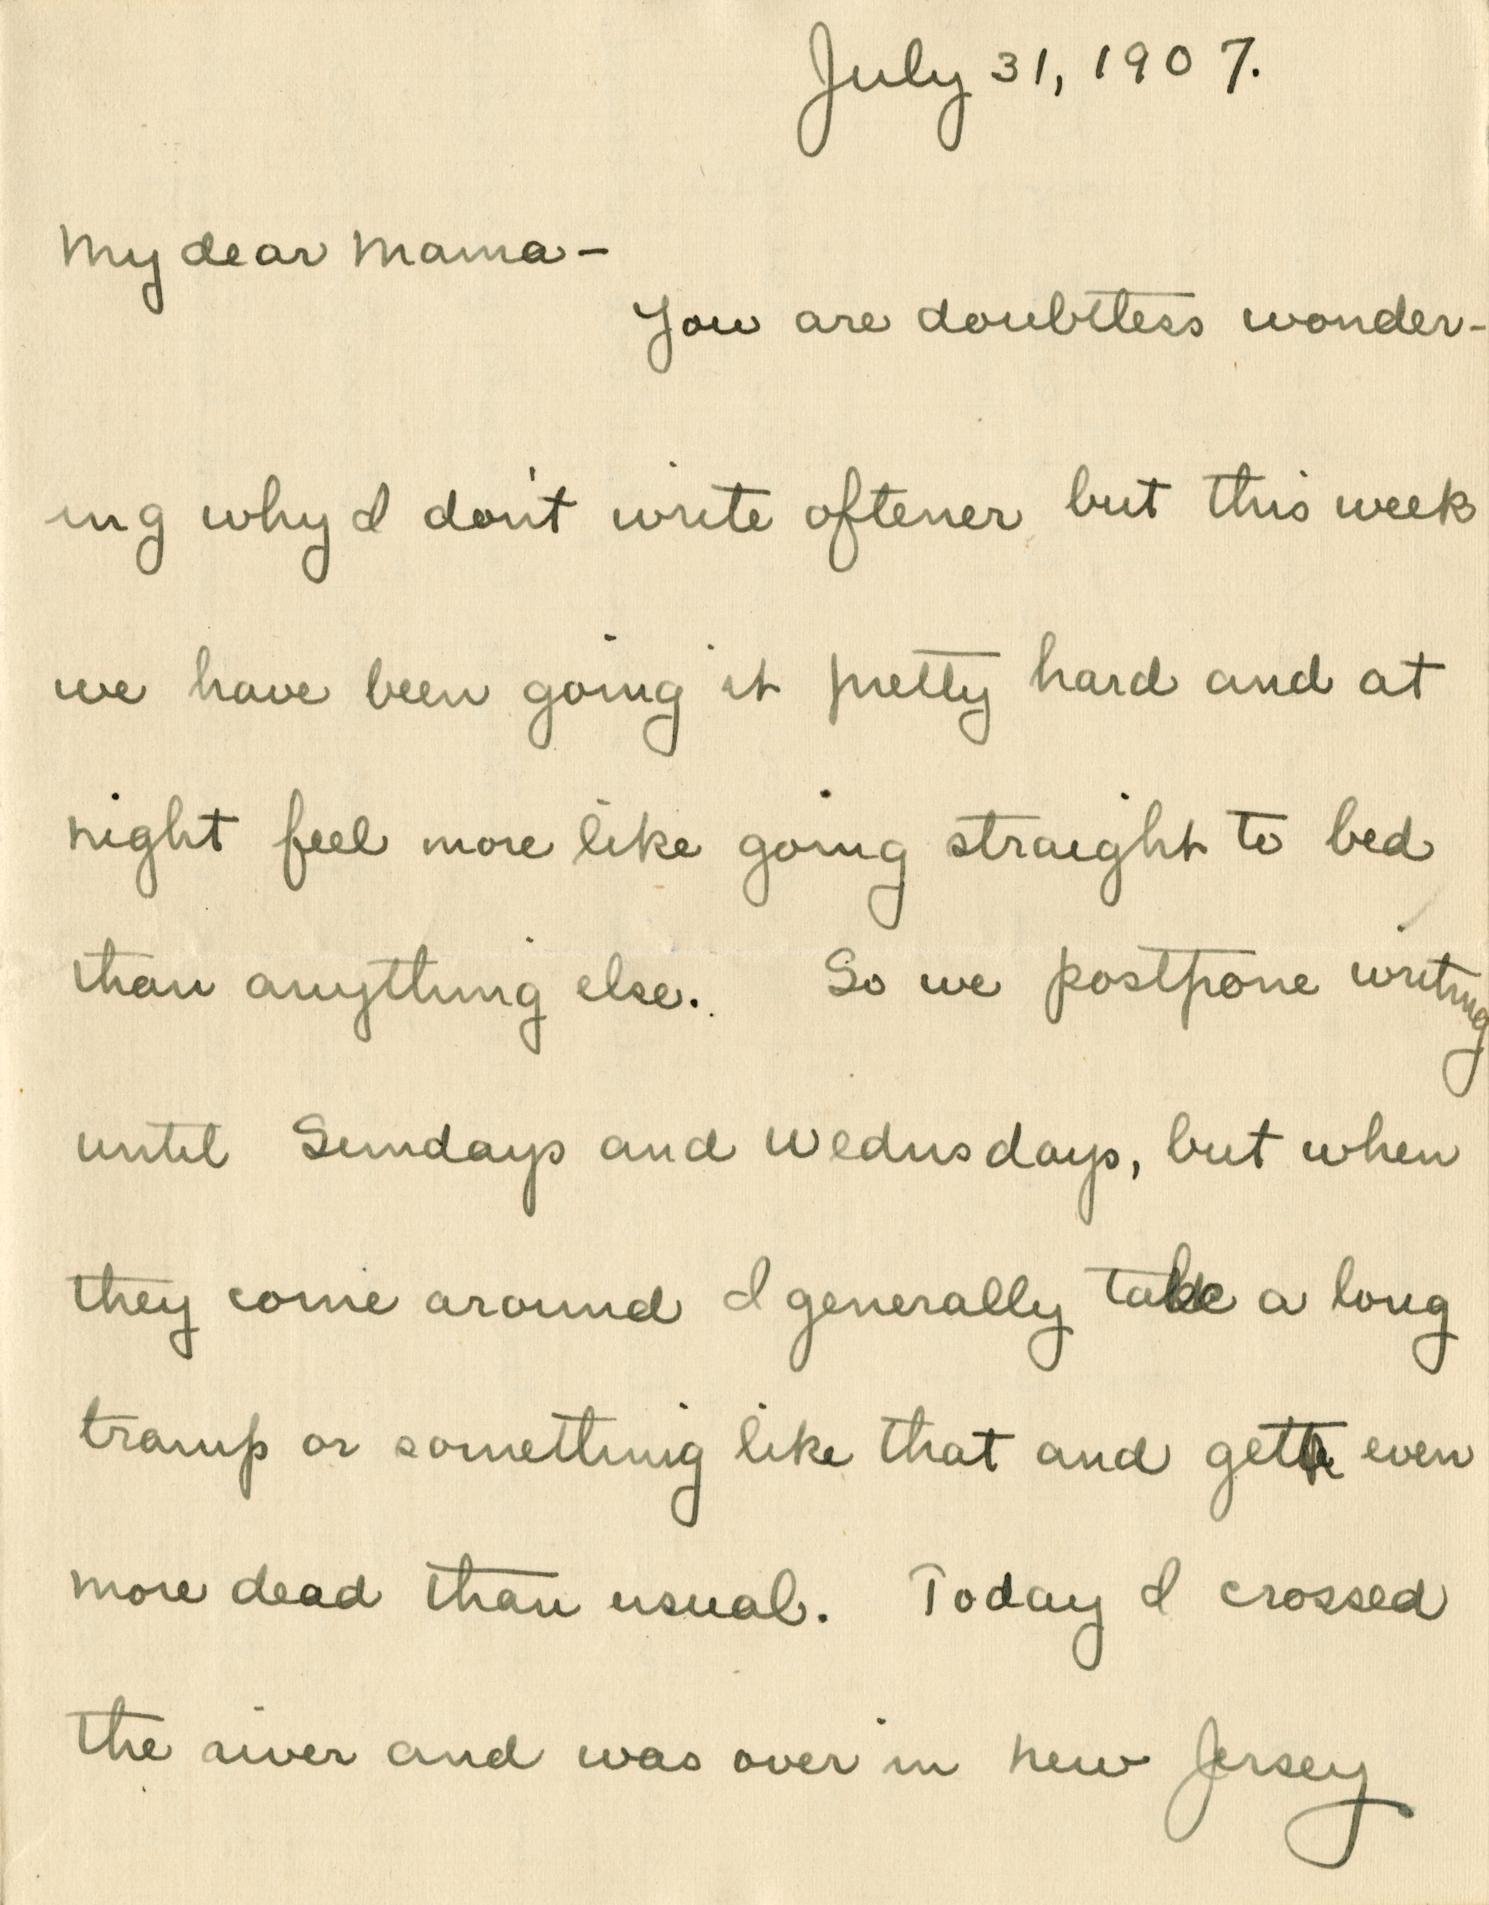 July 31, 1907.
My dear Mama-
You are doubtless wonder-
ing why I don't write oftener but this week
we have been going it pretty hard and at
night feel more like going straight to bed
than anything else. So we postpone writing
until Sundays and Wednsdays, but when
they come around I generally take a long
tramp or something like that and get even
more dead than usual. Today I crossed
the river and was over in New Jersey